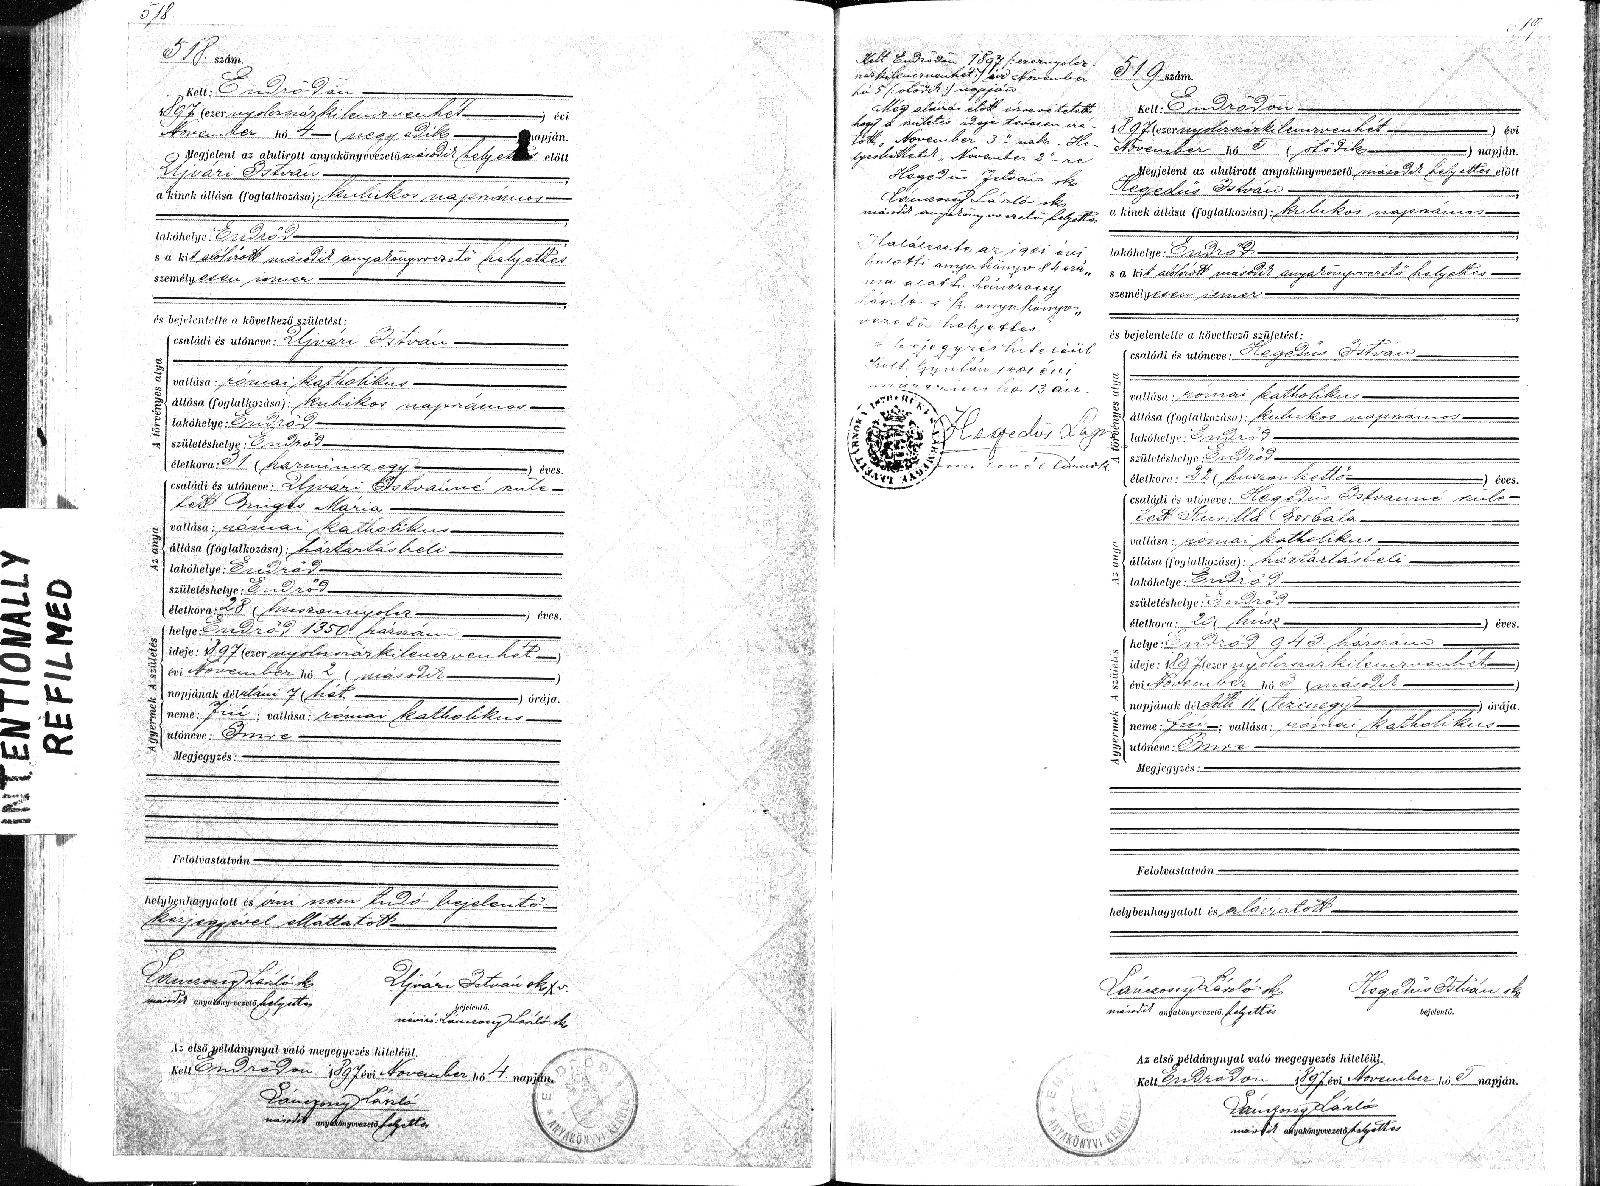 518
518. szám.
Kelt: Endrődön
1897 (ezer nyolcszázkilencvenhét) évi
November hó 4 (negyedik napján.
Megjelent az alulirott anyakönyvvezető második helyettes előtt
Ujvári István
a kinek állása (foglalkozása): kubikos napszámos
lakóhelye: Endrőd
s a kit alólirott második anyakönyvvezető helyettes
személyesen ismer
és bejelentette a következő születést:
A törvényes atya
családi és utóneve: Ujvári István
vallása: római katholikus
állása (foglalkozása): kubikos napszámos
lakóhelye: Endrőd
születéshelye: Endrőd
életkora: 31 (harminczegy) éves.
Az anya
családi és utóneve: Ujvári Istvánné szüle-
tett Mária
vallása: római katholikus
állása (foglalkozása): háztartásbeli
lakóhelye: Endrőd
születéshelye: Endrőd
életkora: 28 (huszonnyolcz) éves.
A születés
helye: Endrőd 1350 házszám
ideje: 1897 (ezer nyolcszázkilencvenhét)
évi November hó 2 (második)
napjának délutáni 7 (hét) órája.
A gyermek
neme: fiú; vallása: római katholikus
utóneve: Imre
Megjegyzés:
Felolvastatván
helybenhagyatott és irni nem tudó bejelentő
kézjegyével elláttatott
Lánczony László sk
második anyakönyvvezető helyettes
Ujvári István sk x v.
bejelentő.
névíró: Lánczony László sk
Az első példánynyal való megegyezés hiteléül.
Kelt Endrődön 1897 évi November hó 4 napján.
Lánczony László
második anyakönyvvezető helyettes
ANYAKÖNYVI KERÜLET
INTENTIONALLY
REFILMED
Kelt Endrődön 1897 (ezernyolcz-
százkilencvenhét) évi November
hó 5 (ötödik) napján
Még aláírás előtt észrevétetett
hogy a születés ideje tévesen íra-
tott „November 3"-nak. He-
lyesbíttetik „November 2"-re
Hegedűs István sk
Lánczony László sk
másodík anyakönyvvezető helyettes
Halálozott az 1901 évi
halotti anyakönyv
alatt. Lánczony
László s. k. anyakönyv-
vezető helyettes
Kelt Gyulán 1901 évi
márczius hó 13 án.
Hegedűs
519 szám.
Kelt: Endrődön
1897 (ezer nyolcszázkilencvenhét) évi
November hó 5 (ötödik) napján.
Megjelent az alulirott anyakönyvvezető második helyettes előtt
Hegedűs István
a kinek állása (foglalkozása): kubikos napszámos
lakóhelye: Endrőd
s a kit alólirott második anyakönyvvezető helyettes
személyesen ismer
és bejelentette a következő születést:
A törvényes atya
családi és utóneve: Hegedűs István
vallása: római katholikus
állása (foglalkozása): kubikos napszámos
lakóhelye: Endrőd
születéshelye: Endrőd
életkora: 22 (huszonkettő) éves.
Az anya
családi és utóneve: Hegedűs Istvánné szüle-
tett Borbála
vallása: római katholikus
állása (foglalkozása): háztartásbeli
lakóhelye: Endrőd
születéshelye: Endrőd
életkora: 20 (húsz) éves.
A születés
helye: Endrőd 943 házszám
ideje: 1897 (ezer nyolcszázkilencvenhét)
évi November hó 3 (második)
napjának délelőtti 11 (tizenegy) órája.
A gyermek
neme: fiú; vallása: római katholikus
utóneve: Imre
Megjegyzés:
Felolvastatván
helybenhagyatott és aláíratott
Lánczony László sk
második anyakönyvvezető helyettes
Hegedűs István sk
bejelentő.
Az első példánynyal való megegyezés hiteléül.
Kelt Endrődön 1897 évi November hó 5 napján.
Lánczony László
második anyakönyvvezető helyettes
ANYAKÖNYVI KERÜLET